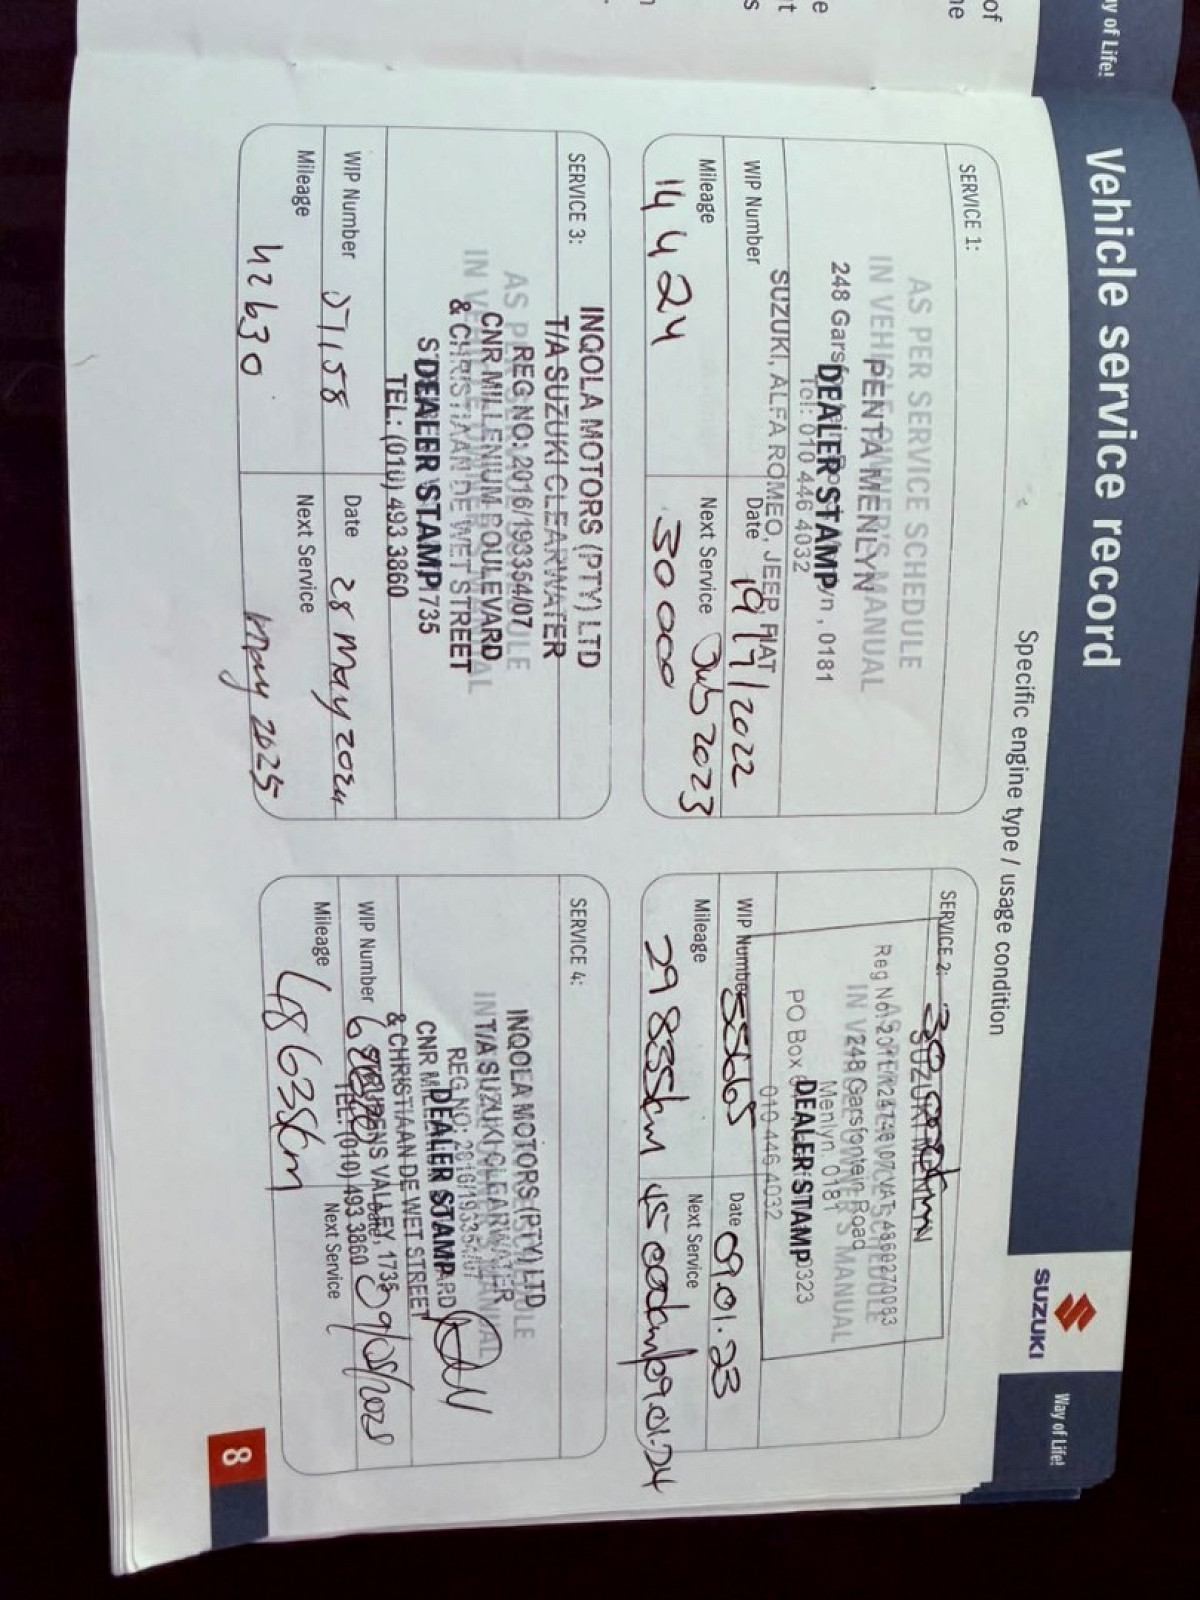 of
ne
e
it
s
n
ay of Life!
Vehicle service record
SUZUKI
Way of Life!
Specific engine type / usage condition
SERVICE 1:
AS PER SERVICE SCHEDULE
IN VEHICLE OWNER'S MANUAL
PENTA MENLYN
DEALER STAMP
, 0181
Tel: 010 446 4032
SUZUKI, ALFA ROMEO, JEEP, FIAT
WIP Number
Date 19/7/2022
Mileage 14424
Next Service 2023
30 000
SERVICE 2: 30 000km
SUZUKI MENLYN
AS PER SERVICE SCHEDULE
IN VEHICLE OWNER'S MANUAL
248 Garsfontein Road
Menlyn 0181
DEALER STAMP
PO Box
0323
010 446 4032
WIP Number 55665
Date 09.01.23
Mileage 29 835km
Next Service 45 000km/09.01.24
SERVICE 3:
INQOLA MOTORS (PTY) LTD
T/A SUZUKI CLEARWATER
AS PER SERVICE SCHEDULE
REG NO: 2016/193354/07
IN VEHICLE OWNER'S MANUAL
CNR MILLENIUM BOULEVARD
& CHRISTIAAN DE WET STREET
DEALER STAMP
1735
TEL: (010) 493 3860
WIP Number 51158
Date 28 May 2024
Mileage 42630
Next Service May 2025
SERVICE 4:
INQOLA MOTORS (PTY) LTD
T/A SUZUKI CLEARWATER
REG NO: 2016/193354/07
DEALER STAMP
& CHRISTIAAN DE WET STREET
STRUBENS VALLEY, 1735
TEL: (010) 493 3860
WIP Number
Date
Mileage 48635km
Next Service
8